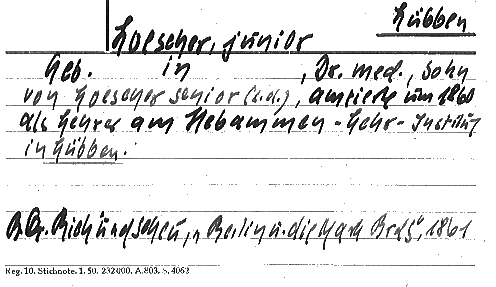 Lübben
Loescher, junior
Geb. in , Dr. med., Sohn
von Loescher senior (s.d.), amtierte um 1860
als Lehrer am Hebammen-Lehr-Institut
in Lübben.
"Berlin u. die Mark Brdbg", 1861
Reg. 10. Stichnote. 1. 50. 232000. A.803. S. 4062